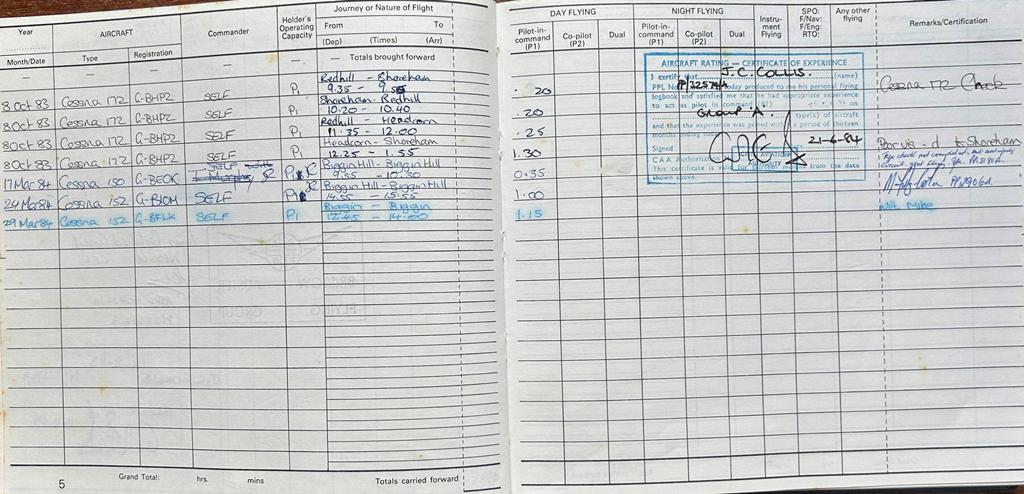 Year
Month/Date
AIRCRAFT
Type
Registration
Commander
Holder's Operating Capacity
Journey or Nature of Flight
From To
(Dep) (Times) (Arr)
— — — — Totales brought forward
DAY FLYING
Pilot-in-command (P1)
Co-pilot (P2)
Dual
NIGHT FLYING
Pilot-in-command (P1)
Co-pilot (P2)
Dual
Instru-ment Flying
SPO: F/Nav: F/Eng: RTO:
Any other flying
Remarks/Certification
8 Oct 83 Cessna 172 G-BHPZ SELF P1 Redhill - Shoreham 9.35 - 9.55 .20 Cessna 172 Check
8 Oct 83 Cessna 172 G-BHPZ SELF P1 Shoreham - Redhill 10.20 - 10.40 .20
8 Oct 83 Cessna 172 G-BHPZ SELF P1 Redhill - Headcorn 11.35 - 12.00 .25
8 Oct 83 Cessna 172 G-BHPZ SELF P1 Headcorn - Shoreham 12.25 - 1.55 1.30 Poor vis. to Shoreham
17 Mar 84 Cessna 150 G-BEOK Biggin Hill - Biggin Hill 9.55 - 10.30 0.35
24 Mar 84 Cessna 152 G-BIOM SELF Biggin Hill - Biggin Hill 14.55 - 15.55 1.00
29 Mar 84 Cessna 152 G-BFLK SELF P1 Biggin - Biggin 12.45 - 14.00 1.15 with Mike
AIRCRAFT RATING — CERTIFICATE OF EXPERIENCE
I certify that J.C. COLLIS (name)
PPL No today produced to me his personal flying
logbook and satisfied me that he had appropriate experience
to act as pilot in command
Group 'A' type(s) of aircraft
and that the experience was gained within a period of thirteen
months ending today
Signed 21-6-84
CAA Authorisation
This certificate is valid from the date
shown above.
5 Grand Total: hrs. mins Totals carried forward